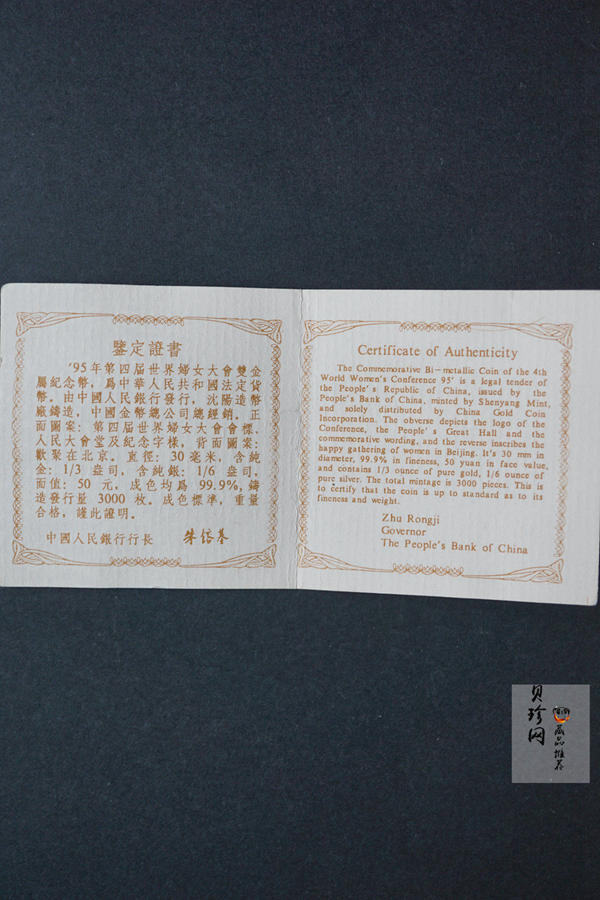 鑒定證書
'95年第四届世界婦女大會雙金
屬紀念幣，爲中華人民共和國法定貨
幣。由中國人民銀行發行，沈陽造幣
廠鑄造，中國金幣總公司總經銷。正
面圖案：第四届世界婦女大會會標、
人民大會堂及紀念字樣，背面圖案：
歡聚在北京。直徑：30毫米，含純
金：1/3 盎司，含純銀：1/6 盎司，
面值：50 元，成色均爲 99.9%，鑄
造發行量 3000 枚。成色標準，重量
合格，謹此證明。
中國人民銀行行長 朱镕基
Certificate of Authenticity
The Commemorative Bi-metallic Coin of the 4th
World Women's Conference 95' is a legal tender of
the People's Republic of China, issued by the
People's Bank of China, minted by Shenyang Mint,
and solely distributed by China Gold Coin
Incorporation. The obverse depicts the logo of the
Conference, the People's Great Hall and the
commemorative wording, and the reverse inscribes the
happy gathering of women in Beijing. It's 30 mm in
diameter, 99.9% in fineness, 50 yuan in face value,
and contains 1/3 ounce of pure gold, 1/6 ounce of
pure silver. The total mintage is 3000 pieces. This is
to certify that the coin is up to standard as to its
fineness and weight.
Zhu Rongji
Governor
The People's Bank of China
贝珍网
藏品推荐